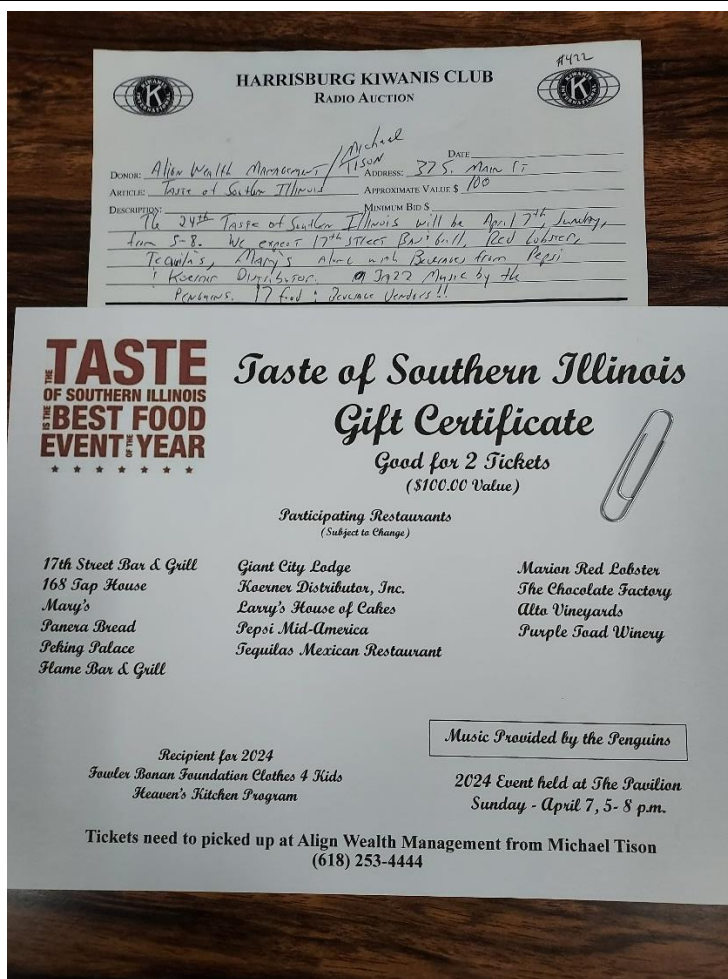 #422
HARRISBURG KIWANIS CLUB
RADIO AUCTION
K
KIWANIS
INTERNATIONAL
K
KIWANIS
INTERNATIONAL
DATE
DONOR: Align Wealth Management / Michael Tison
ADDRESS: 37 S. Main St
ARTICLE: Taste of Southern Illinois
APPROXIMATE VALUE $ 100
MINIMUM BID $
DESCRIPTION:
The 24th Taste of Southern Illinois will be April 7th, Sunday,
from 5-8. We expect 17th Street Bar & Grill, Red Lobster,
Tequila's, Mary's along with Beverages from Pepsi
& Koerner Distributor. Music by the
Penguins. 17 food & Beverage Vendors!!
THE TASTE
OF SOUTHERN ILLINOIS
IS THE BEST FOOD
EVENT OF THE YEAR
Taste of Southern Illinois
Gift Certificate
Good for 2 Tickets
($100.00 Value)
Participating Restaurants
(Subject to Change)
17th Street Bar & Grill
168 Tap House
Mary's
Panera Bread
Peking Palace
Flame Bar & Grill
Giant City Lodge
Koerner Distributor, Inc.
Larry's House of Cakes
Pepsi Mid-America
Tequilas Mexican Restaurant
Marion Red Lobster
The Chocolate Factory
Alto Vineyards
Purple Toad Winery
Music Provided by the Penguins
Recipient for 2024
Fowler Bonan Foundation Clothes 4 Kids
Heaven's Kitchen Program
2024 Event held at The Pavilion
Sunday - April 7, 5- 8 p.m.
Tickets need to picked up at Align Wealth Management from Michael Tison
(618) 253-4444